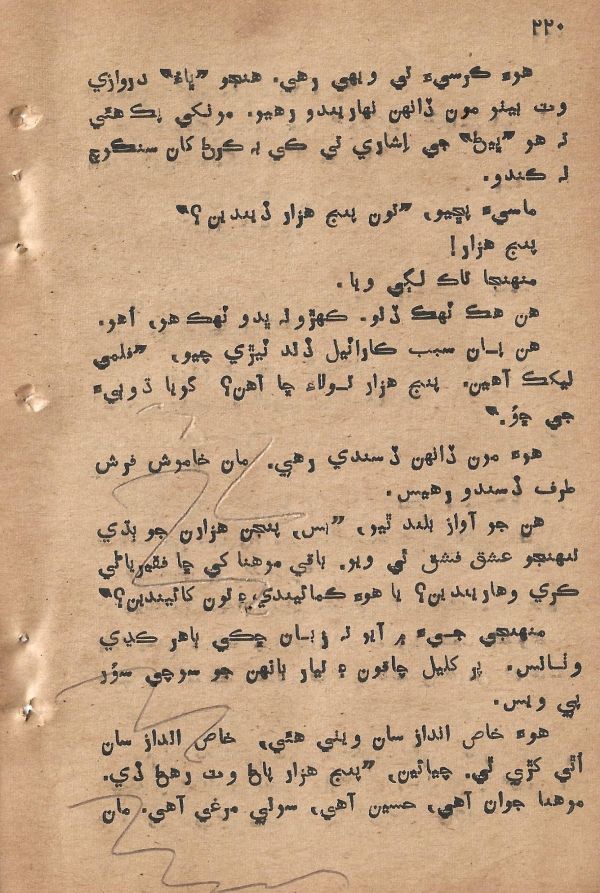 ۲۲۰
هوءَ ڪرسيءَ تي ويهي رهي. هنجو ”ڀاءُ“ دروازي
وٽ بيٺو مون ڏانهن نهاريندو رهيو. مونکي پڪ هئي
تہ هو ”ڀيڻ“ جي اِشاري تي ڪي بہ ڪرڻ کان سنڪوچ
نہ ڪندو.
ماسيءَ پڇيو، ”تون پنج هزار ڏيندين؟“
پنج هزار!
منهنجا ٽاڪ لڳي ويا.
هن هڪ ٽهڪ ڏنو. ڪهڙو نہ ڀدو ٽهڪ هو، اُهو.
هن پان سبب ڪارائيل ڏند ٽيڙي چيو، ”فلمي
ليکڪ آهين. پنج هزار تولاءِ ڇا آهن؟ گويا ڌوٻيءَ
جي ڇوُ.“
هوءَ مون ڏانهن ڏسندي رهي. مان خاموش فرش
طرف ڏسندو رهيس.
هن جو آواز بلند ٿيو، ”بس، پنجن هزارن جو ٻڌي
تنهنجو عشق فشق ئي ويو. باقي موهنا کي ڇا فقيرياڻي
ڪري وهاريندين؟ يا هوءَ ڪمائيندي، ۽ تون کائيندين؟“
منهنجي جيءَ ۾ آيو تہ زبان ڇڪي ٻاهر ڪڍي
وٺانس. پر کليل چاقون ۽ تيار ٻانهن جو سوچي سُوُر
پي ويس.
هوءَ خاص انداز سان ويٺي هئي، خاص انداز سان
اُٿي کڙي ٿي. چيائين، ”پنج هزار پاڻ وٽ رهڻ ڏي.
موهنا جوان آهي، حسين آهي، سولي مرغي آهي. مان